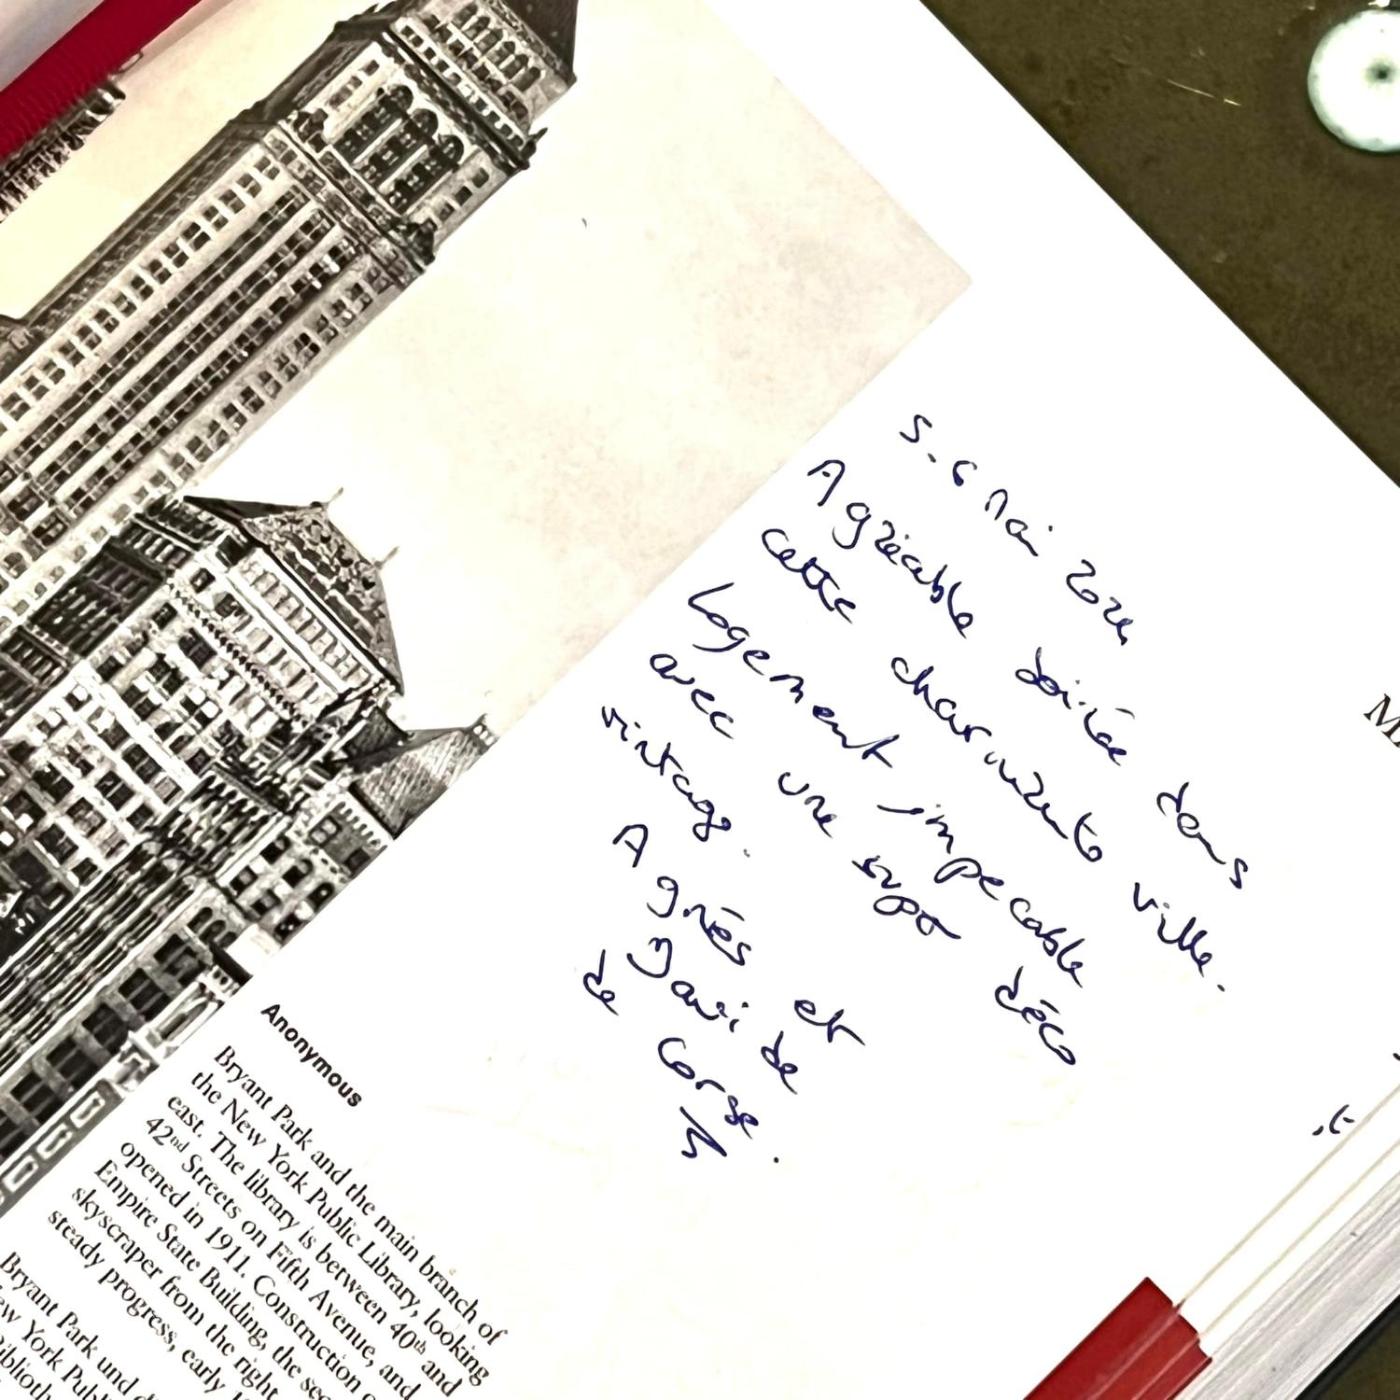 5-6 Mai 2024
Agréable soirée dans
cette charmante ville.
Logement impecable
avec une super déco
vintage.
Agnès et
de
de Corse.
Anonymous
Bryant Park and the main branch of
the New York Public Library, looking
east. The library is between 40th and
42nd Streets on Fifth Avenue, and
opened in 1911. Construction
Empire State Building, the
skyscraper from the right
steady progress, early
Bryant Park und